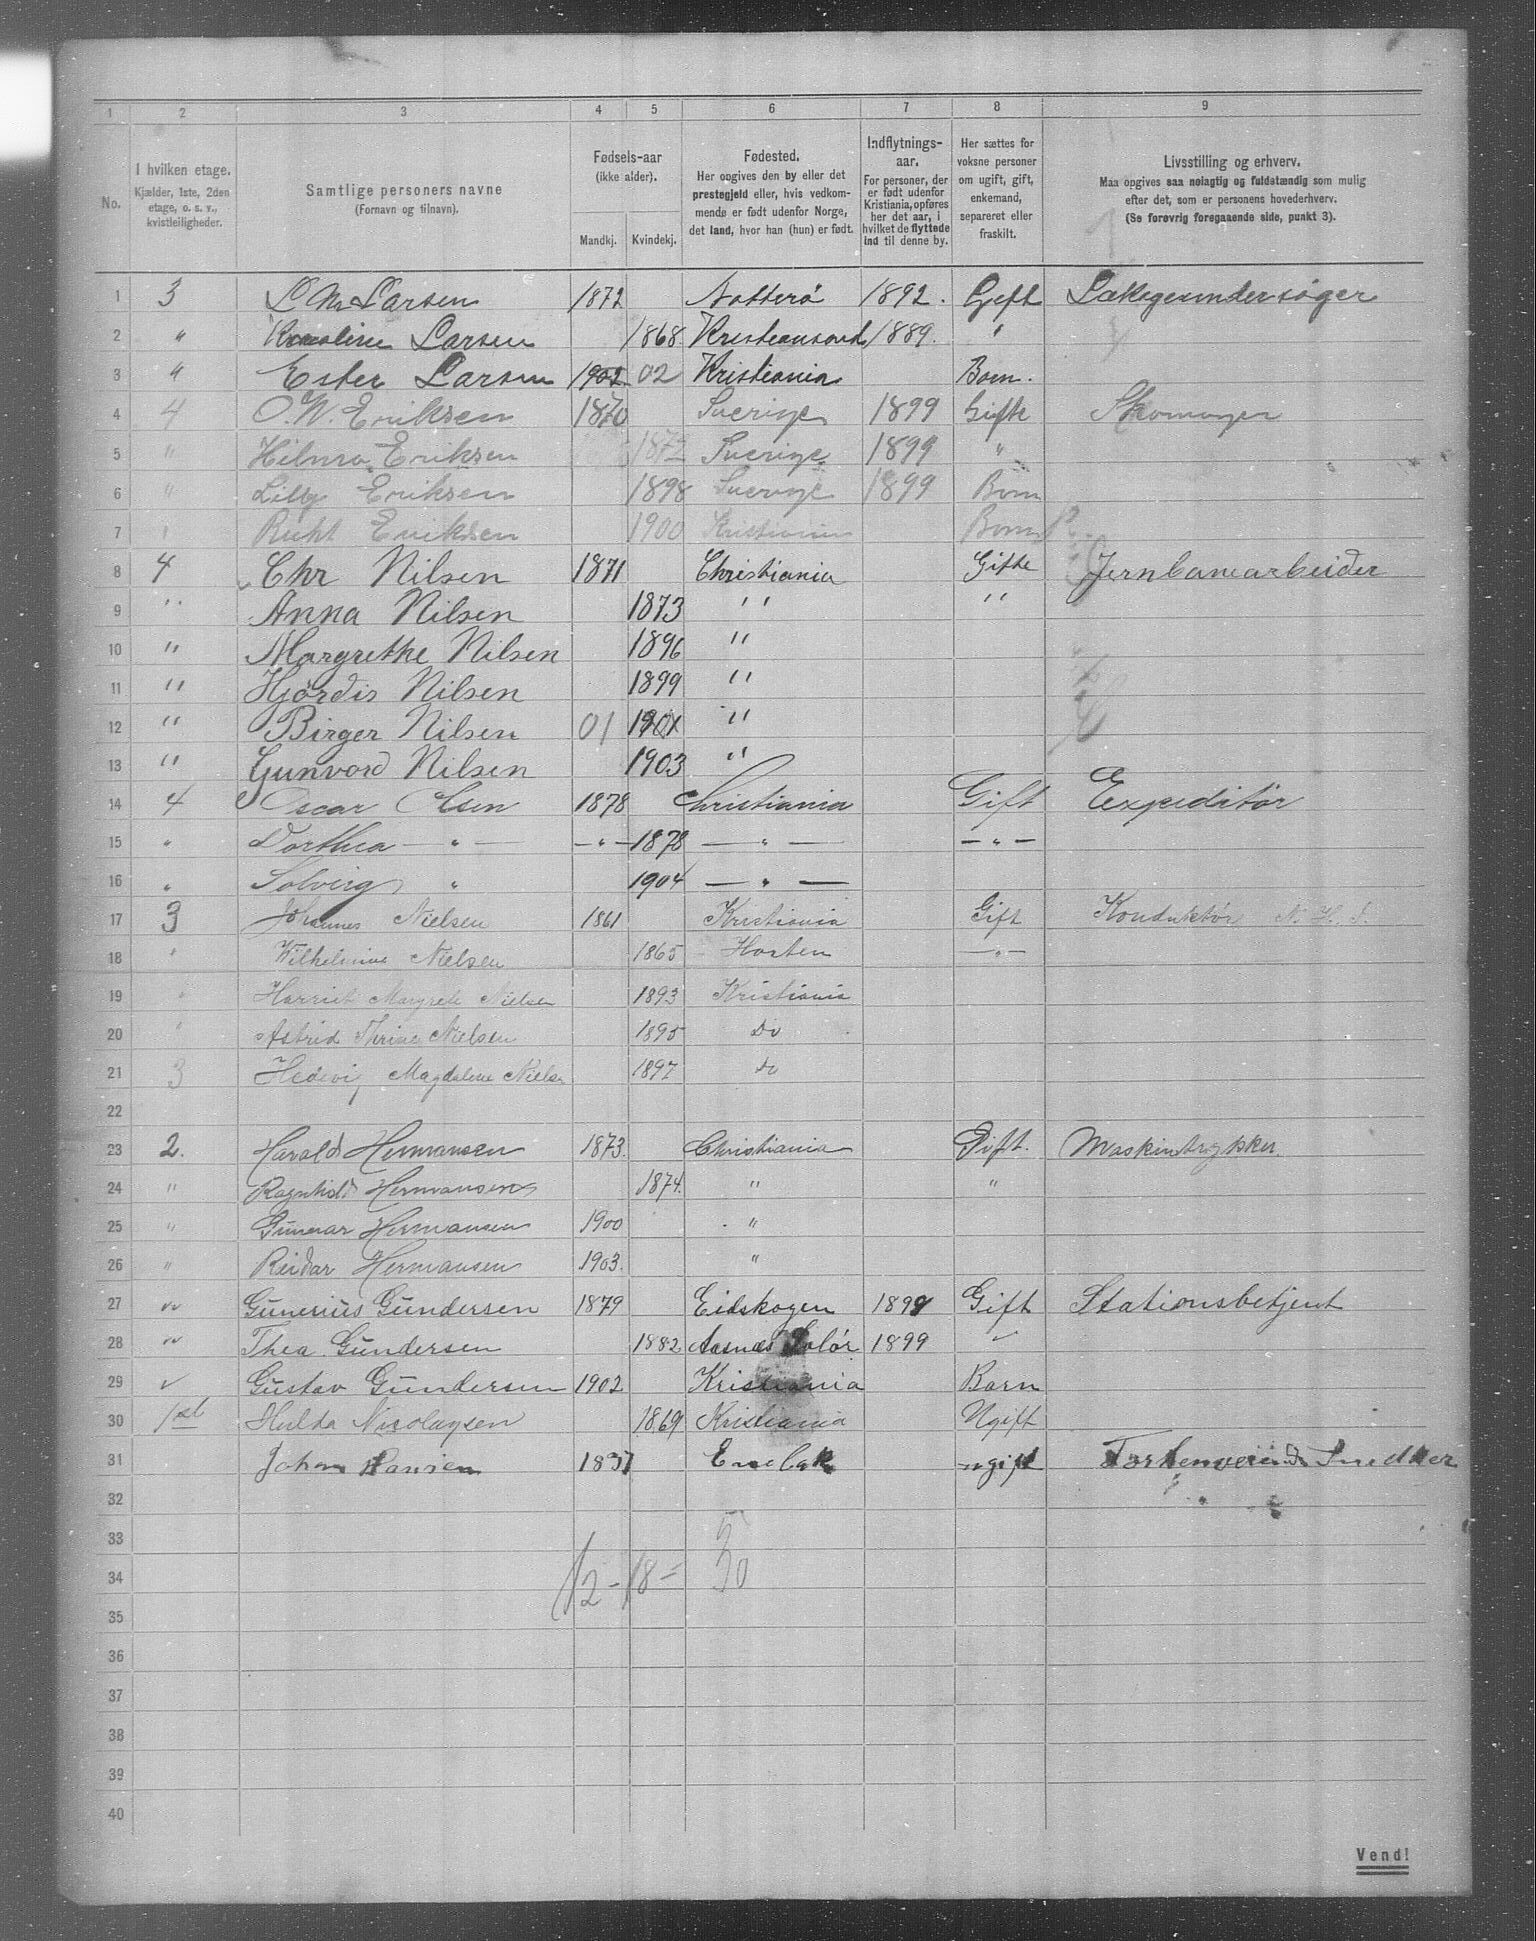 1 2 3 4 5 6 7 8 9
No.
I hvilken etage.
Kjælder, 1ste, 2den
etage, o. s. v.,
kvistleiligheder.
Samtlige personers navne
(Fornavn og tilnavn).
Fødsels-aar
(ikke alder).
Mandkj. Kvindekj.
Fødested.
Her opgives den by eller det
prestegjeld eller, hvis vedkom-
mende er født udenfor Norge,
det land, hvor han (hun) er født.
Indflytnings-
aar.
For personer, der
er født udenfor
Kristiania, opføres
her det aar, i
hvilket de flyttede
ind til denne by.
Her sættes for
voksne personer
om ugift, gift,
enkemand,
separeret eller
fraskilt.
Livsstilling og erhverv.
Maa opgives saa nøiagtig og fuldstændig som mulig
efter det, som er personens hovederhverv.
(Se forøvrig foregaaende side, punkt 3).
1 3 L. M. Larsen 1872 Nøtterø 1892. Gift Lækageundersøger
2 " Karoline Larsen 1868 Kristiansand 1889. "
3 " Ester Larsen 1902 02 Kristiania Barn.
4 4 O. W. Eriksen 1870 Sverige 1899 Gifte Skomager
5 " Hilma Eriksen 1872 Sverige 1899 "
6 " Lilly Eriksen 1898 Sverige 1899 Barn
7 " Eriksen 1900 Kristiania Barn
8 4 Chr Nilsen 1871 Christiania Gifte Jernbanearbeider
9 " Anna Nilsen 1873 " "
10 " Margrethe Nilsen 1896 "
11 " Hjørdis Nilsen 1899 "
12 " Birger Nilsen 01 1901 "
13 " Gunvord Nilsen 1903 "
14 4 Oscar Olsen 1878 Christiania Gift Expeditør
15 " Dorthea — " — — " — 1878 — " — — " —
16 " Solveig " 1904 — " —
17 3 Johannes Nielsen 1861 Kristiania Gift Konduktør N. H. J.
18 " Wilhelmine Nielsen 1865 Horten — " —
19 " Harriet Margrete Nielsen 1893 Kristiania
20 " Astrid Thrine Nielsen 1895 Do
21 3 Hedevig Magdalene Nielsen 1897 Do
22
23 2. Harald Hermansen 1873. Christiania Gift. Maskintrykker.
24 " Ragnhild Hermansen 1874. " "
25 " Gunnar Hermansen 1900 "
26 " Reidar Hermansen 1903. "
27 " Gunerius Gundersen 1879 Eidskogen 1899 Gift Stationsbetjent
28 " Thea Gundersen 1882 Aasnæs Solør 1899 "
29 " Gustav Gundersen 1902 Kristiania Barn
30 1st Hulda Nicolaysen 1869 Kristiania Ugift
31 Johan Hansen 1837 Enebak ugift Snedker
32
33
34 12 - 18 = 30
35
36
37
38
39
40
Vend!